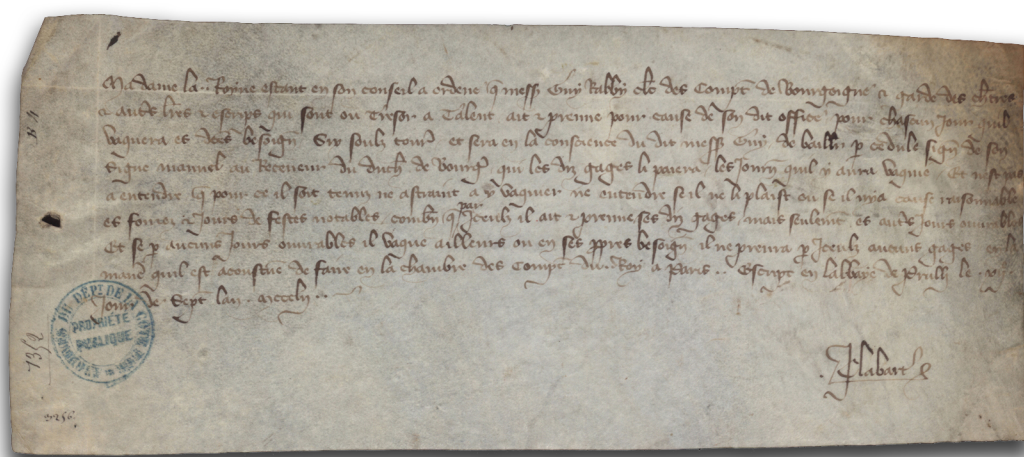 Madame la Royne estant en son conseil a ordene q̃ mess̃ Guy Rabby clt̃ des Compt̃ de Bourgoigne & garde des chr̃es
& aut̃s lr̃es & escrips qui sont ou Tresor a Talent ait & prenne pour cause de son dit office pour chascun Jour quil
vaquera es des̃s besoign̄ Six soulz tourñ et sera en la conscience du dit mess̃ Guy de baillr̃ p cedule sign̄ de son
Signe manuel au Receveur du duch̄ de Bourg̃ qui les d̃ gages li paiera les Journ̄ quil y aura vaquie Et nest pas
a entendre q̃ pour ce il soit tenu ne astraint a y vaquier ne entendre se il ne li plaist ou se il nya cause raisonnable
es foires & Jours de festes notables combn̄ q̃ par Iceulz il ait & prenne ses d̃ gages mais seulemt̃ es aut̃s Jours ouvrables
Et se p aucuns Jours ouvrables il vaque ailleurs ou en ses ppres besoign̄ il ne penra p Iceulz aucuns gages et la
manie quil est acoustume de faire en la chambre des Compt̃ du Roy a Paris Escript en labbaye de Prully le
Jour de Sept lan mccclij
P labart
DE DÉPT DE LA CÔTE D'OR
PROPRIÉTÉ
PUBLIQUE
1352